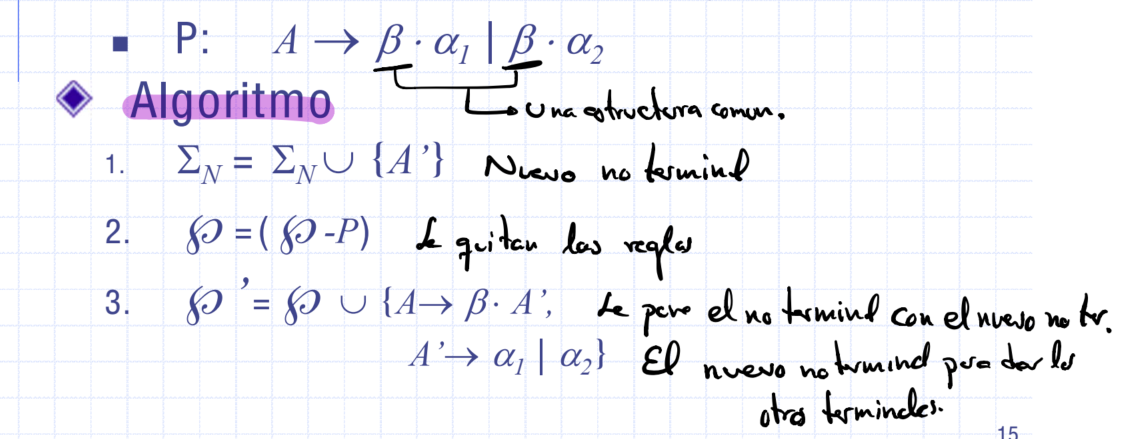 ▪ P: A → β · α₁ | β · α₂
Algoritmo
Una estructura comun.
1. Σ_N = Σ_N ∪ {A'} Nuevo no terminal
2. ℘ = ( ℘ -P) Se quitan las reglas
3. ℘ '= ℘ ∪ {A→ β· A', Se pone el no terminal con el nuevo no ter.
A'→ α₁ | α₂} El nuevo no terminal para dar los
otros terminales.
15